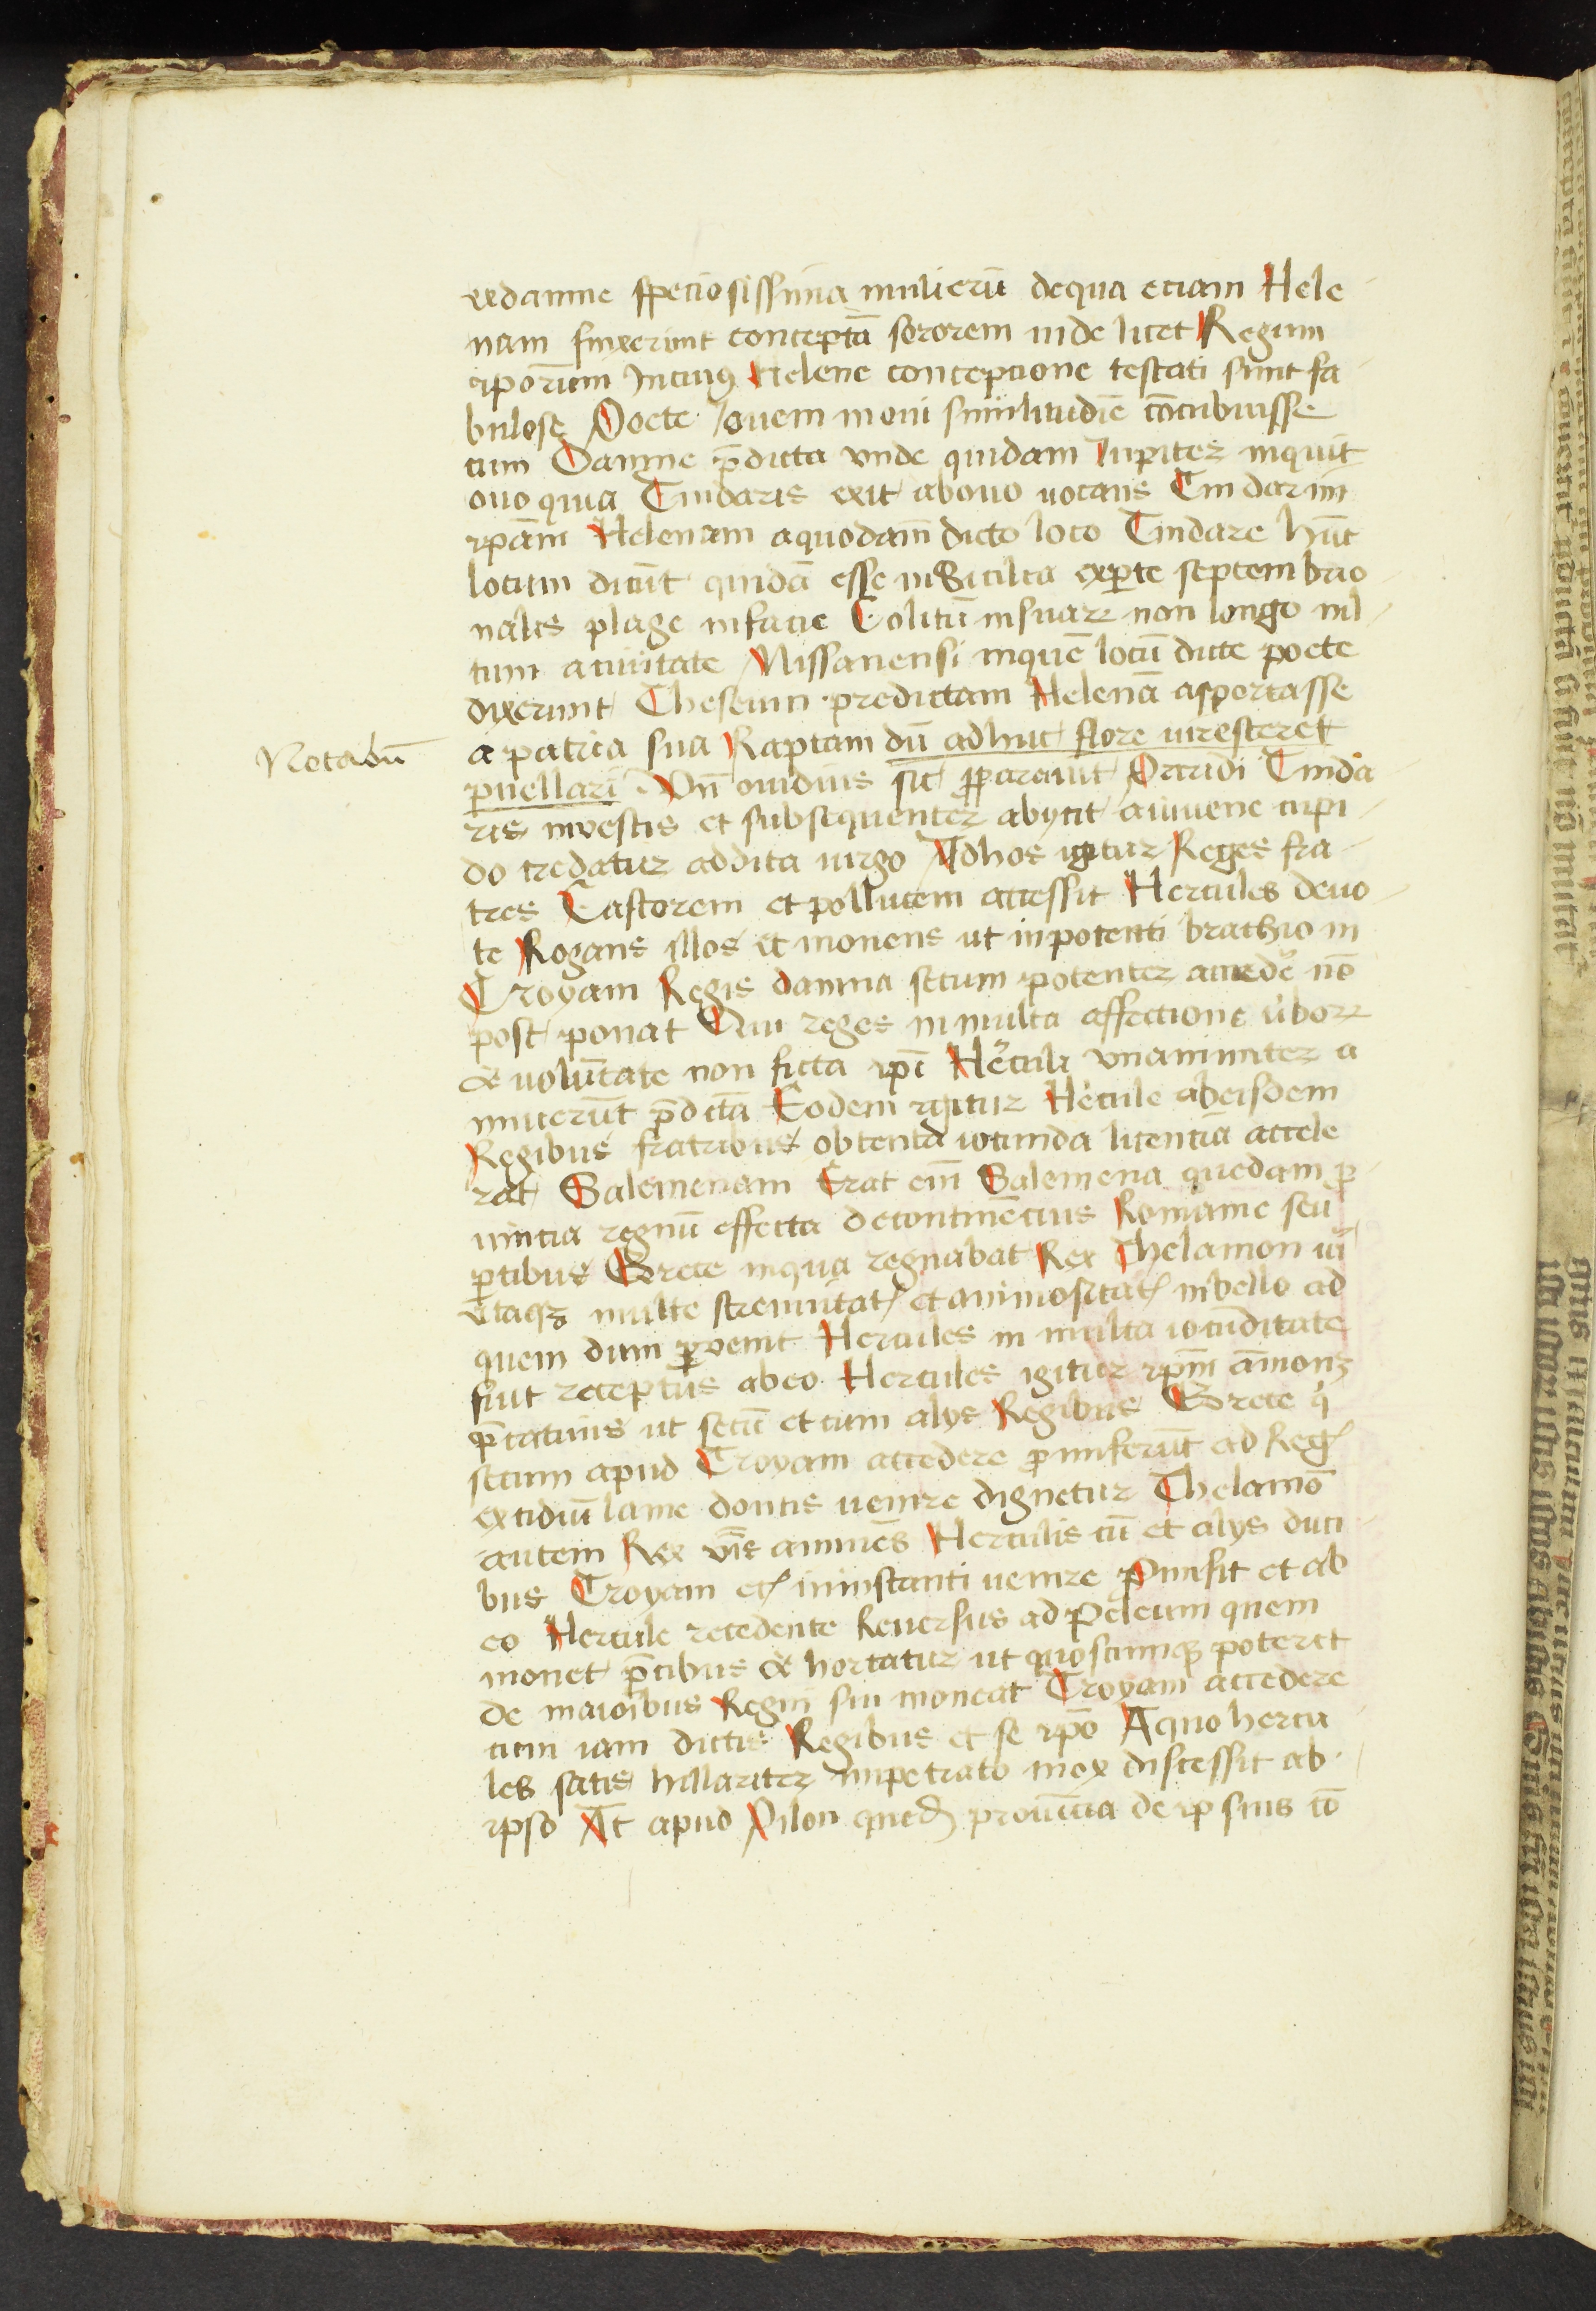 exdanne speciosissima mulierū dequa etiam Hele
nam finxerunt conceptā sororem inde licet Regum
ipōrum Incuiꝰ Helene conceptione testati sunt fa
bulose Poete Iouem inoui similitudīe cōcubuisse
cum Danne p̄dicta vnde quidam Iupiter inquit
ouo quia Tindaris exit abouo uocans Tindarim
ip̄am Helenam aquodam̄ dicto loco Tindare hūc
locum dicūt quidā esse inSicilia exꝑte septembrio
nalis plage infacie Colicū insuaꝝ non longo ml
tum aciuitate Missanensi inquē locū dicte poete
dixerunt Theseum predictam Helenā asportasse
a patria sua Raptam dū adhuc flore uiresceret
Notabū
puellari Vn̄ ouidius sic ꝓparauit Oraridi Tinda
ris inuestis et subsequenter abycit aiuuene cupi
do credatur addita uirgo Adhos igitur Reges fra
tres Castorem et pollucem accessit Hercules deuo
te Rogans illos et monens ut inpotenti brachio in
Troyam Regis damna secum potenter acceder̄ nō
post ponat Qui reges in multa affectione ūboꝝ
et uolūtate non ficta ip̄i Hêrculi vnanimiter a
nnuerūt p̄dc̄ā Eodem igitur Hêrcule abeisdem
Regibus fratribus obtenta iocunda licentia accele
rat Salemenam Erat em̄ Salemena quedam ꝓ
uincia regnū effecta decontinēcius Romanie seu
ꝑtibus Grece inqua regnabat Rex Thelamon ui
vtaqꝫ multe strenuitatꝭ et animositatꝭ inbello ad
quem dum ꝑuenit Hercules in multa iocūditate
fuit receptus abeo Hercules igitur ip̄m āmonꝫ
p̄catiuis ut secū et cum alys Regibus Grece q̄
secum apud Troyam accedere ꝓmiserūt ad Regꝭ
extidiū lame dontis uenire dignetur Thelamō
autem Rex v̄is annuēs Herculis cū et alys duci
bus Troyam etꝭ ininstanti uenire ꝓmisit et ab
eo Hercule recedente Reuersus ad Peleum quem
monet p̄cibus et hortatur ut quoscumqꝫ poteret
de maioribus Regni sui moneat Troyam accedere
cum iam dictis Regibus et se ip̄o Aquo hercu
les satis hillariter impetrato mox discessit ab
ipso At apud Pilon quedꝭ prouīcia de ipsius cō